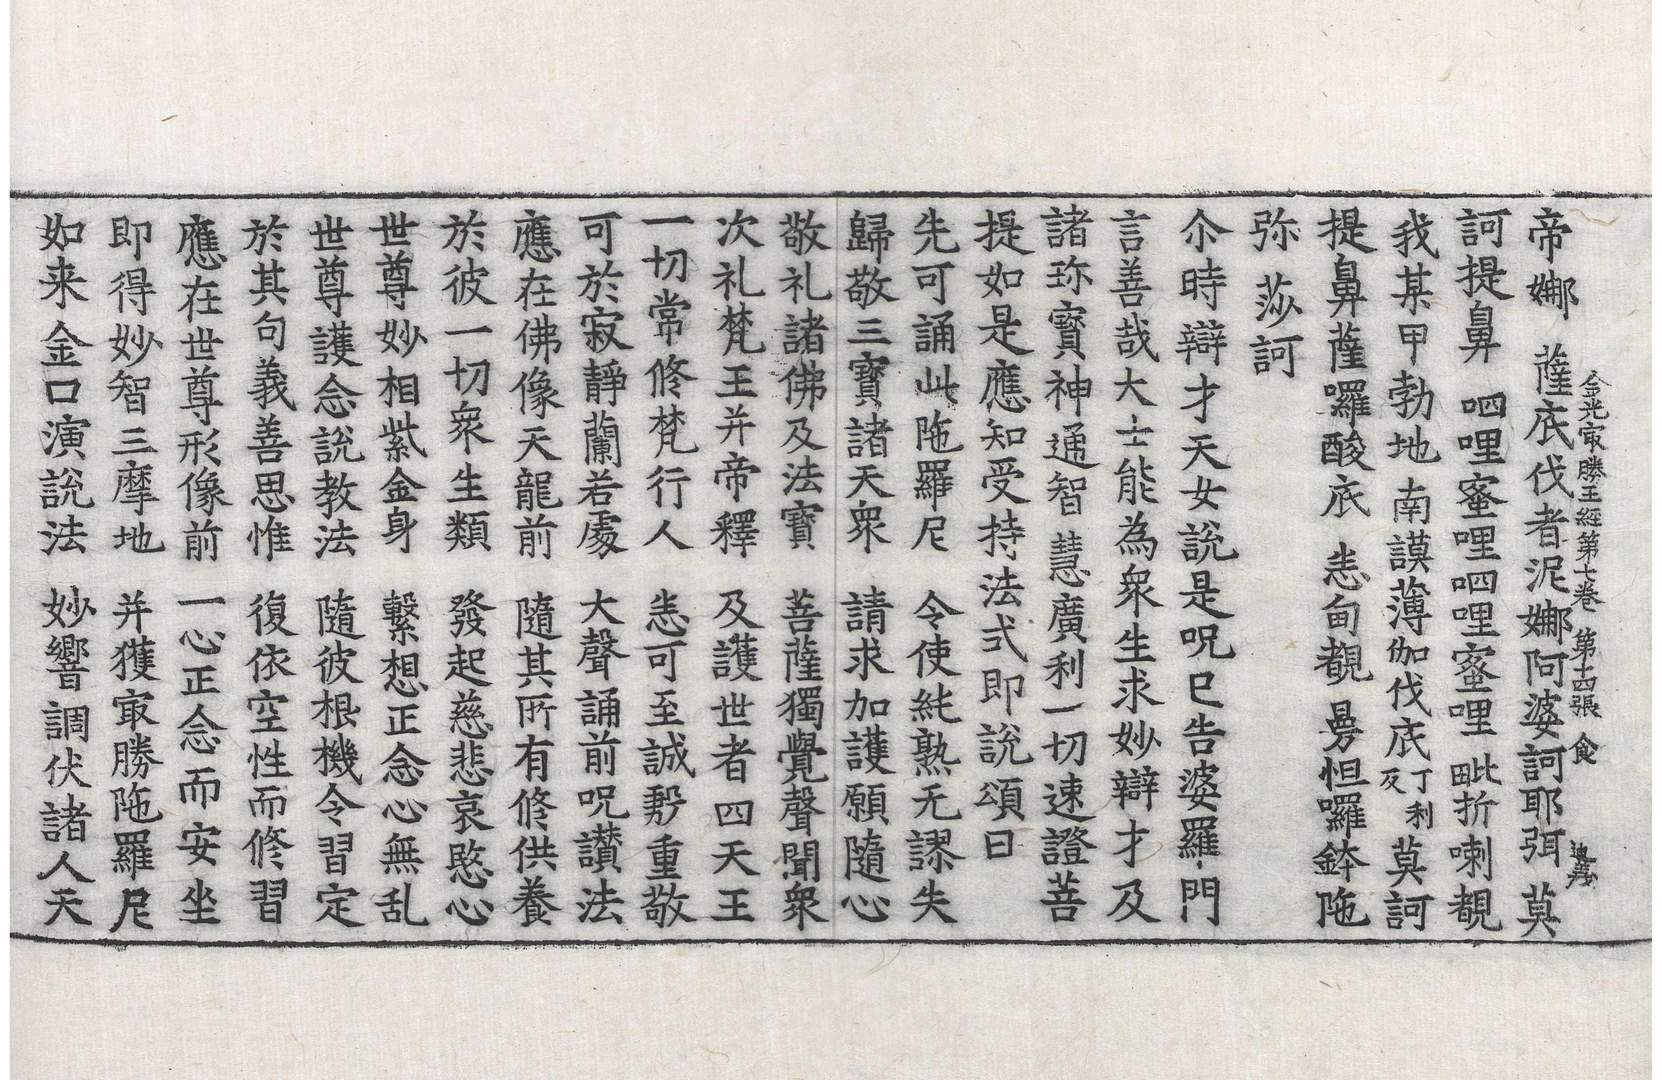 帝娜 薩底伐者泥娜阿婆訶耶弭 莫
金光㝡勝王經第七卷 第十四張 食
訶提鼻 呬哩蜜哩呬哩蜜哩 毗折喇覩
我某甲勃地 南謨薄伽伐底丁利反莫訶
提鼻薩囉酸底 悉甸覩 曼怛囉鉢陁
弥 莎訶
尒時辯才天女說是呪已告婆羅門
言善哉大士能為衆生求妙辯才及
諸珎寳神通智慧廣利一切速證菩
提如是應知受持法式即說頌曰
先可誦此陁羅尼 令使純熟无謬失
歸敬三寳諸天衆 請求加護願隨心
敬礼諸佛及法寳 菩薩獨覺聲聞衆
次礼梵王并帝釋 及護世者四天王
一切常修梵行人 悉可至誠殷重敬
可於寂靜蘭若處 大聲誦前呪讚法
應在佛像天龍前 隨其所有修供養
於彼一切衆生類 發起慈悲哀愍心
世尊妙相紫金身 繫想正念心無乱
世尊護念說教法 隨彼根機令習定
於其句義善思惟 復依空性而修習
應在世尊形像前 一心正念而安坐
即得妙智三摩地 并獲㝡勝陁羅尼
如来金口演說法 妙響調伏諸人天